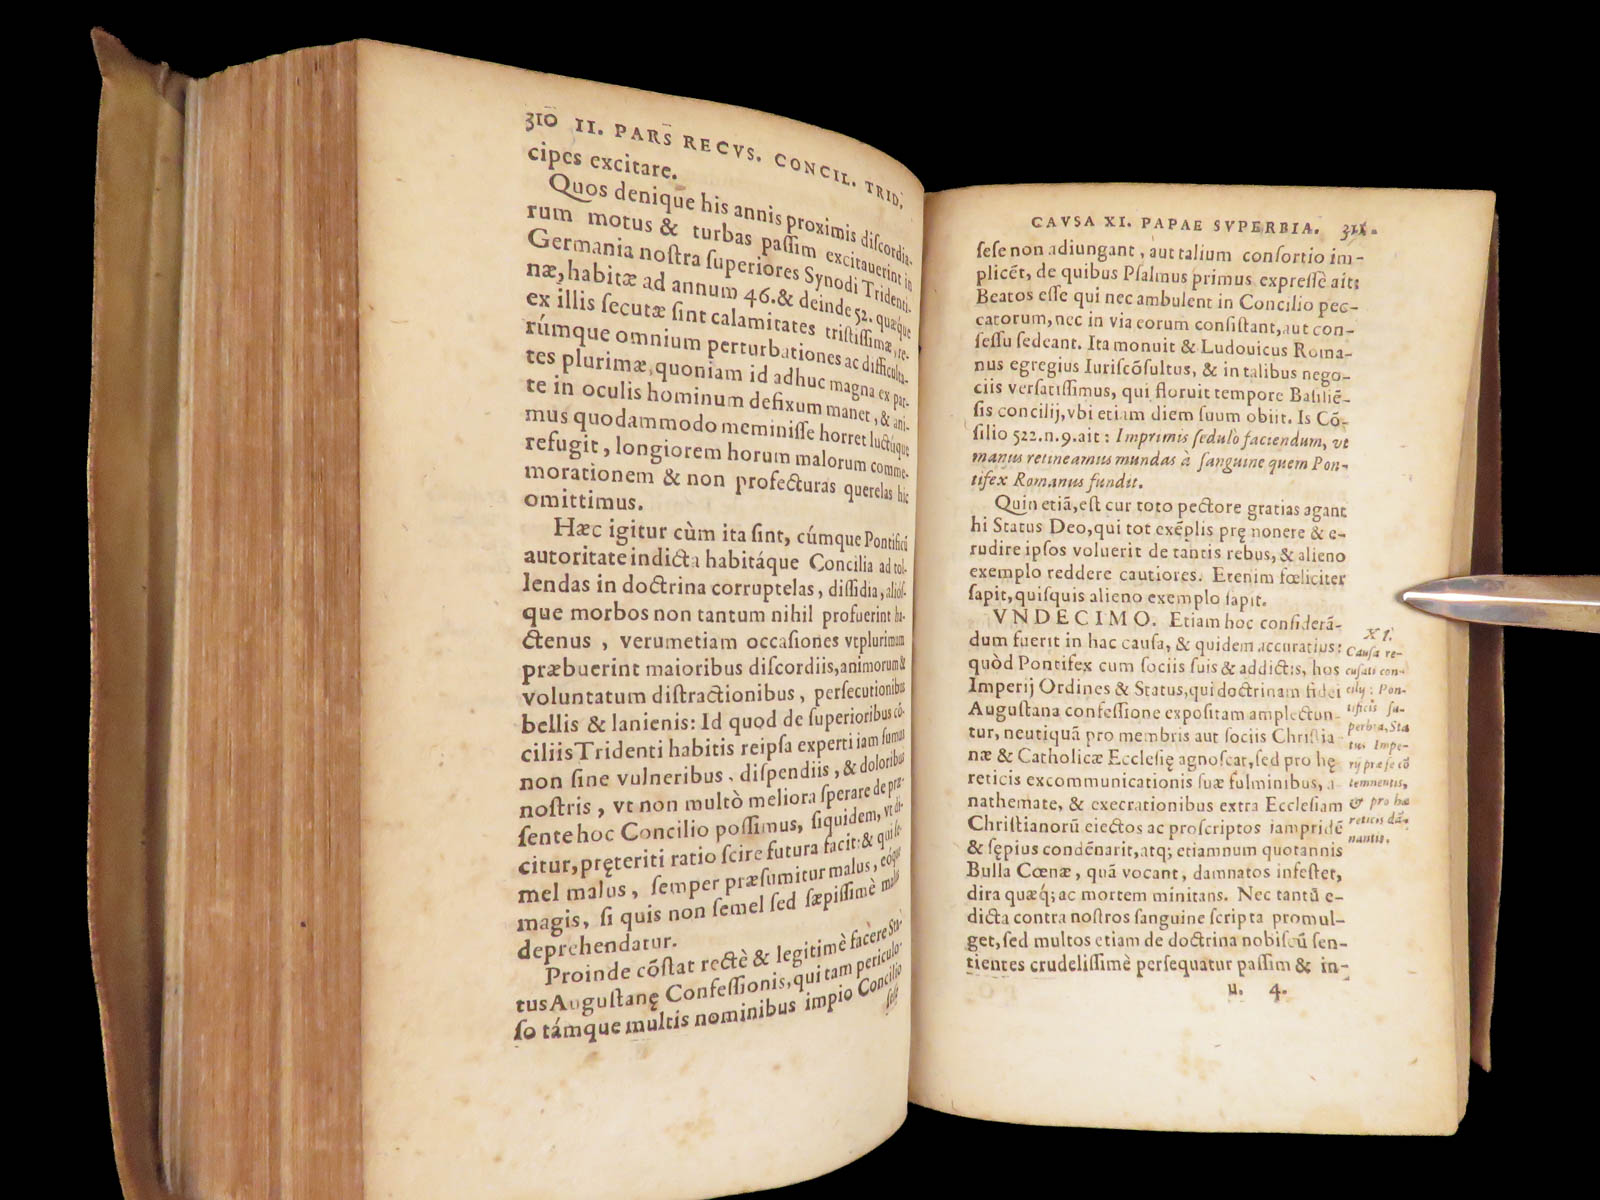 310 II. PARS RECVS. CONCIL. TRID.
cipes excitare.
Quos denique his annis proximis discordia-
rum motus & turbas passim excitauerint in
Germania nostra superiores Synodi Tridenti-
næ, habitæ ad annum 46. & deinde 52. quæque
ex illis secutæ sint calamitates tristissimæ, re-
rúmque omnium perturbationes ac difficulta-
tes plurimæ, quoniam id adhuc magna ex par-
te in oculis hominum defixum manet, & ani-
mus quodammodo meminisse horret luctúque
refugit, longiorem horum malorum comme-
morationem & non profecturas querelas hic
omittimus.
Hæc igitur cùm ita sint, cúmque Pontificũ
autoritate indicta habitáque Concilia ad tol-
lendas in doctrina corruptelas, dissidia, aliós-
que morbos non tantum nihil profuerint ha-
ctenus, verumetiam occasiones vtplurimum
præbuerint maioribus discordiis, animorum &
voluntatum distractionibus, persecutionibus
bellis & lanienis: Id quod de superioribus cõ-
ciliis Tridenti habitis reipsa experti iam sumus
non sine vulneribus, dispendiis, & doloribus
nostris, vt non multò meliora sperare de præ-
sente hoc Concilio possimus, siquidem, vt di-
citur, pręteriti ratio scire futura facit: & qui se-
mel malus, semper præsumitur malus, eóque
magis, si quis non semel sed sæpissimè malus
deprehendatur.
Proinde cõstat rectè & legitimè facere Sta-
tus Augustanę Confessionis, qui tam periculo-
so támque multis nominibus impio Concilio
sese
CAVSA XI. PAPAE SVPERBIA. 311.
sese non adiungant, aut talium consortio im-
plicẽt, de quibus Psalmus primus expressè ait:
Beatos esse qui nec ambulent in Concilio pec-
catorum, nec in via eorum consistant, aut con-
sessu sedeant. Ita monuit & Ludouicus Roma-
nus egregius Iuriscõsultus, & in talibus nego-
ciis versatissimus, qui floruit tempore Basiliẽ-
sis concilij, vbi etiam diem suum obiit. Is Cõ-
silio 522. n. 9. ait: Imprimis sedulò faciendum, vt
manus retineamus mundas à sanguine quem Pon-
tifex Romanus fundit.
Quin etiã, est cur toto pectore gratias agant
hi Status Deo, qui tot exẽplis prę nonere & e-
rudire ipsos voluerit de tantis rebus, & alieno
exemplo reddere cautiores. Etenim fœliciter
sapit, quisquis alieno exemplo sapit.
VNDECIMO. Etiam hoc considerã-
dum fuerit in hac causa, & quidem accuratius:
quòd Pontifex cum sociis suis & addictis, hos
Imperij Ordines & Status, qui doctrinam fidei
Augustana confessione expositam amplectun-
tur, neutiquã pro membris aut sociis Christia-
næ & Catholicæ Ecclesię agnoscat, sed pro hę
reticis excommunicationis suæ fulminibus, a-
nathemate, & execrationibus extra Ecclesiam
Christianorũ eiectos ac proscriptos iampridẽ
& sępius condẽnarit, atq; etiamnum quotannis
Bulla Cœnæ, quã vocant, damnatos infestet,
dira quæq; ac mortem minitans. Nec tantũ e-
dicta contra nostros sanguine scripta promul-
get, sed multos etiam de doctrina nobiscũ sen-
tientes crudelissimè persequatur passim & in-
u. 4.
XI.
Causa re-
cusati con-
cilij: Pon-
tificis su-
perbia, Sta
tus Impe-
rij præ se cõ
temnentis,
& pro hæ
reticis dã-
nantis.